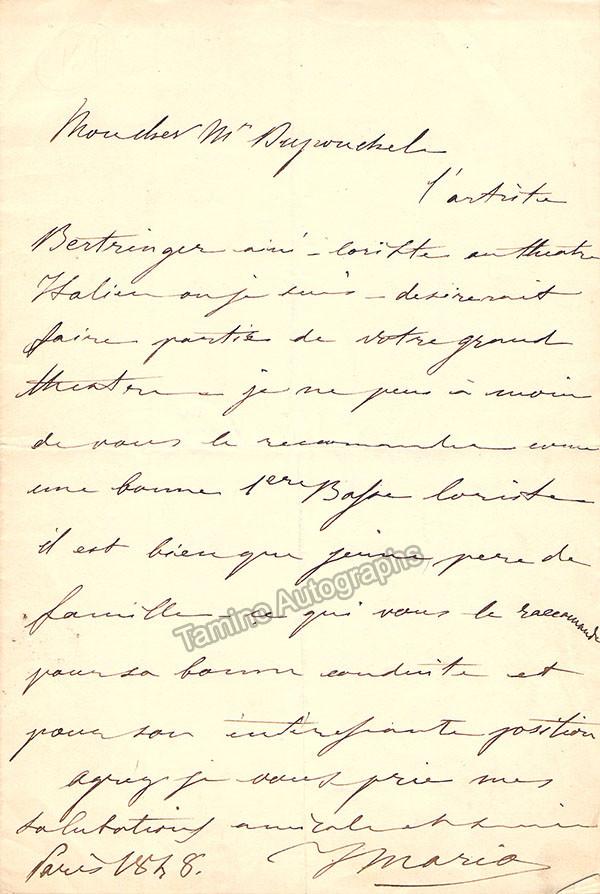 Mon cher Mr Duponchel
l'artiste
Bertringer ainé - coriste au theatre
Italien ou je suis - desirerait
faire partie de votre grand
theatre - je ne peus à moin
de vous le recommander comme
une bonne 1ere Basse coriste
il est bien que jeune pere de
famille - ce qui vous le raccomande
pour sa bonne conduite et
pour son intéressante position
agrez je vous prie mes
salutations amicale et
Paris 1848.
Mario
Tamino Autographs